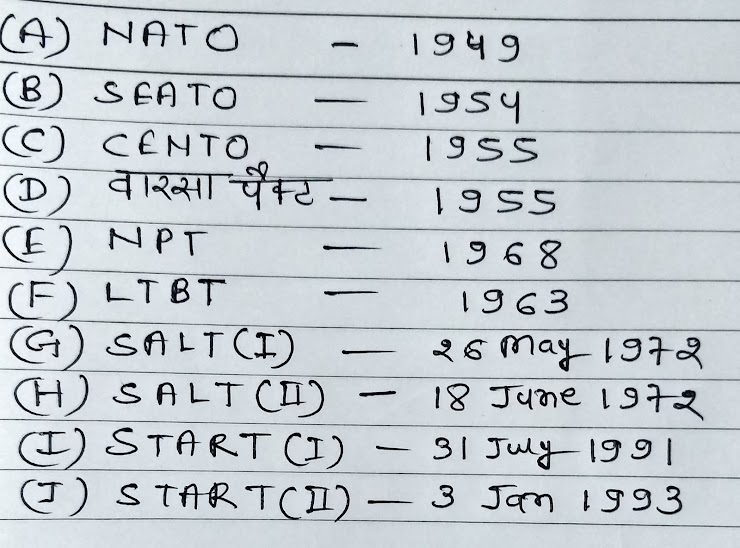 (A) NATO - 1949
(B) SEATO — 1954
(C) CENTO — 1955
(D) वारसा पैक्ट — 1955
(E) NPT — 1968
(F) LTBT — 1963
(G) SALT(I) — 26 May 1972
(H) SALT(II) — 18 June 1972
(I) START(I) — 31 July 1991
(J) START(II) — 3 Jan 1993